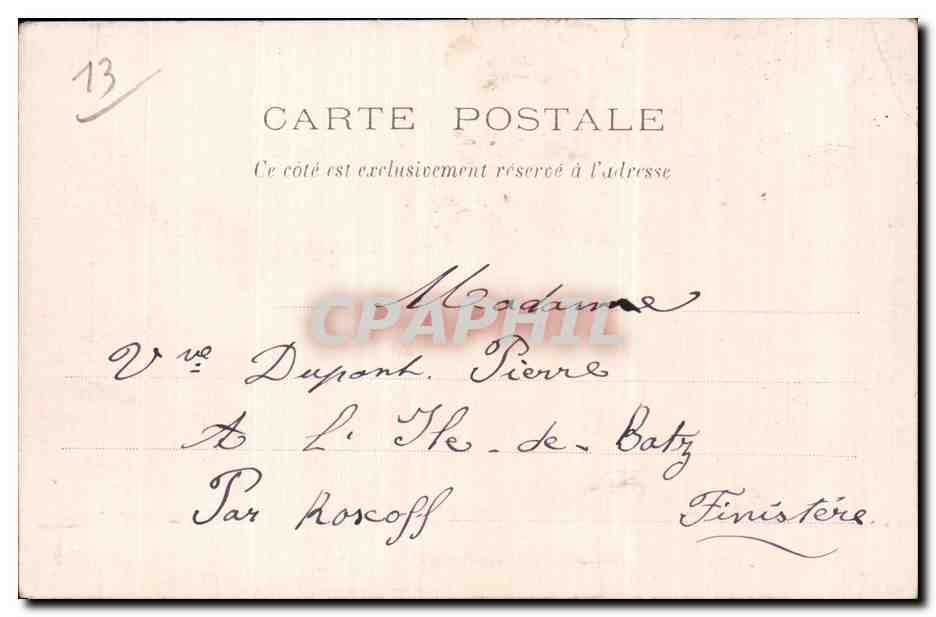 13
CARTE POSTALE
Ce côté est exclusivement réservé à l'adresse
Madame
CPAPHIL
Vve Dupont. Pierre
A L'Ile-de-Batz
Par Roscoff Finistére.